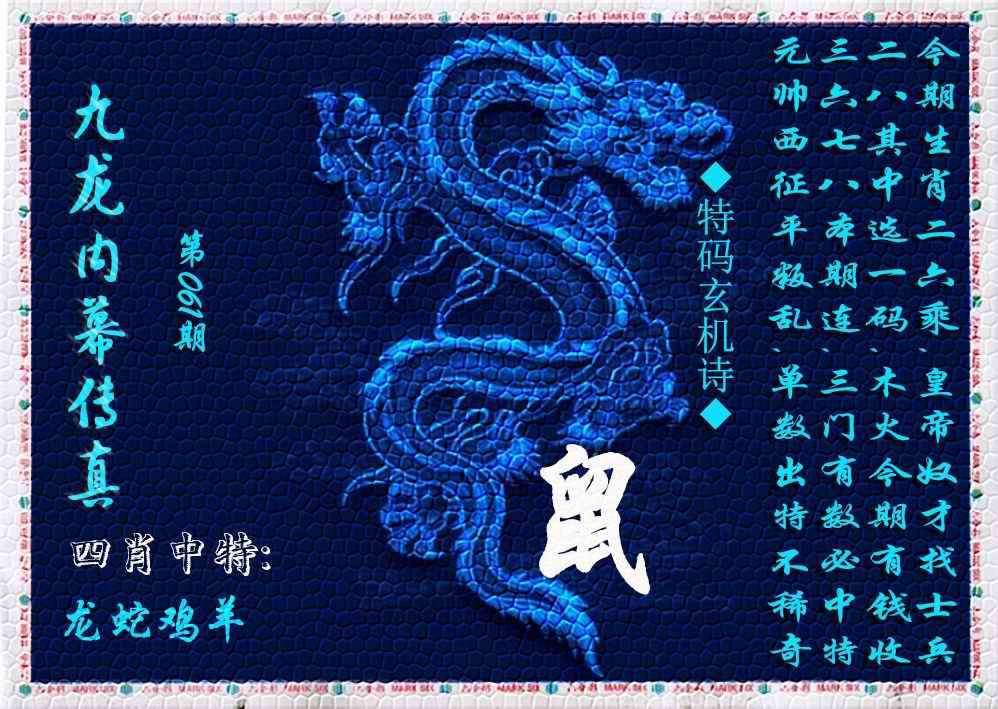 九龙内幕传真
第061期
四肖中特:
龙蛇鸡羊
鼠
◆特码玄机诗◆
今期生肖二六乘、皇帝奴才找士兵
二八其中选一码、木火今期有钱收
三六七八本期连、三门有数必中特
元帅西征平叛乱、单数出特不稀奇